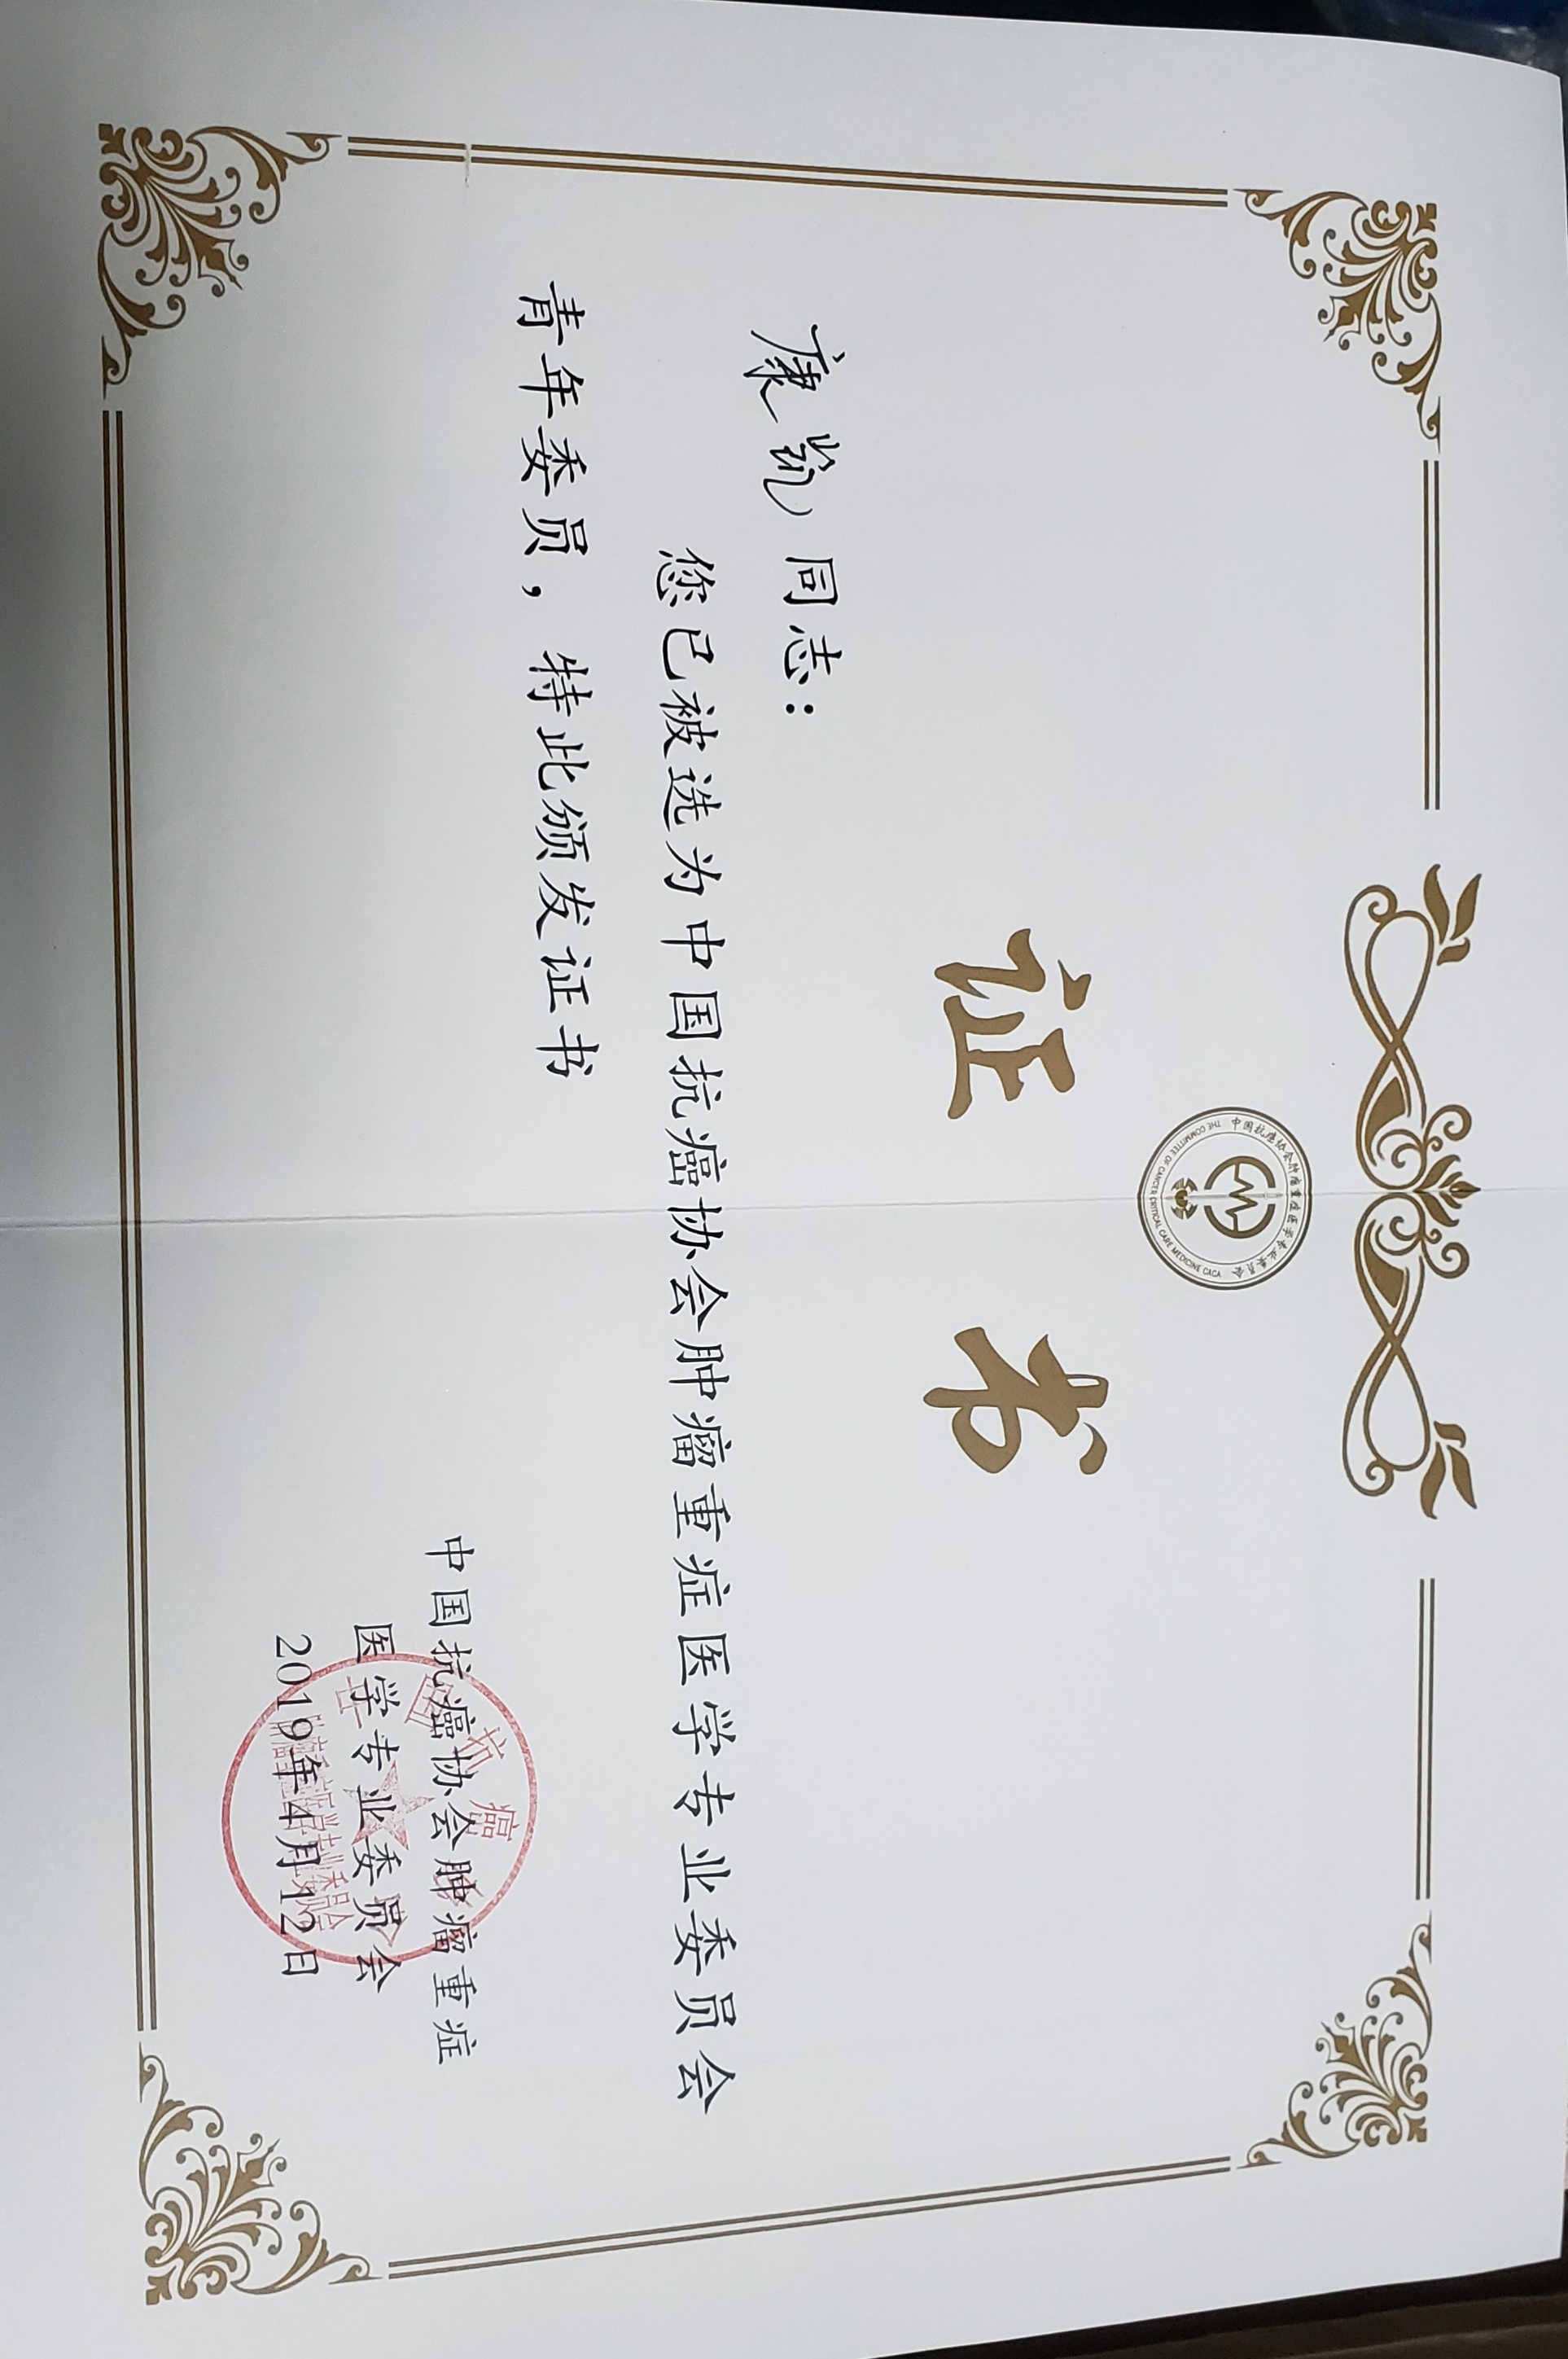 中国抗癌协会肿瘤重症医学专业委员会
THE COMMITTEE OF CANCER CRITICAL CARE MEDICINE CACA
证 书
康凯 同志：
您已被选为中国抗癌协会肿瘤重症医学专业委员会
青年委员，特此颁发证书
中国抗癌协会肿瘤重症
医学专业委员会
2019年4月12日